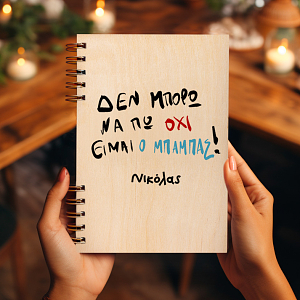 ΔΕΝ ΜΠΟΡΩ
ΝΑ ΠΩ ΟΧΙ
ΕΙΜΑΙ Ο ΜΠΑΜΠΑΣ!
Νικόλας